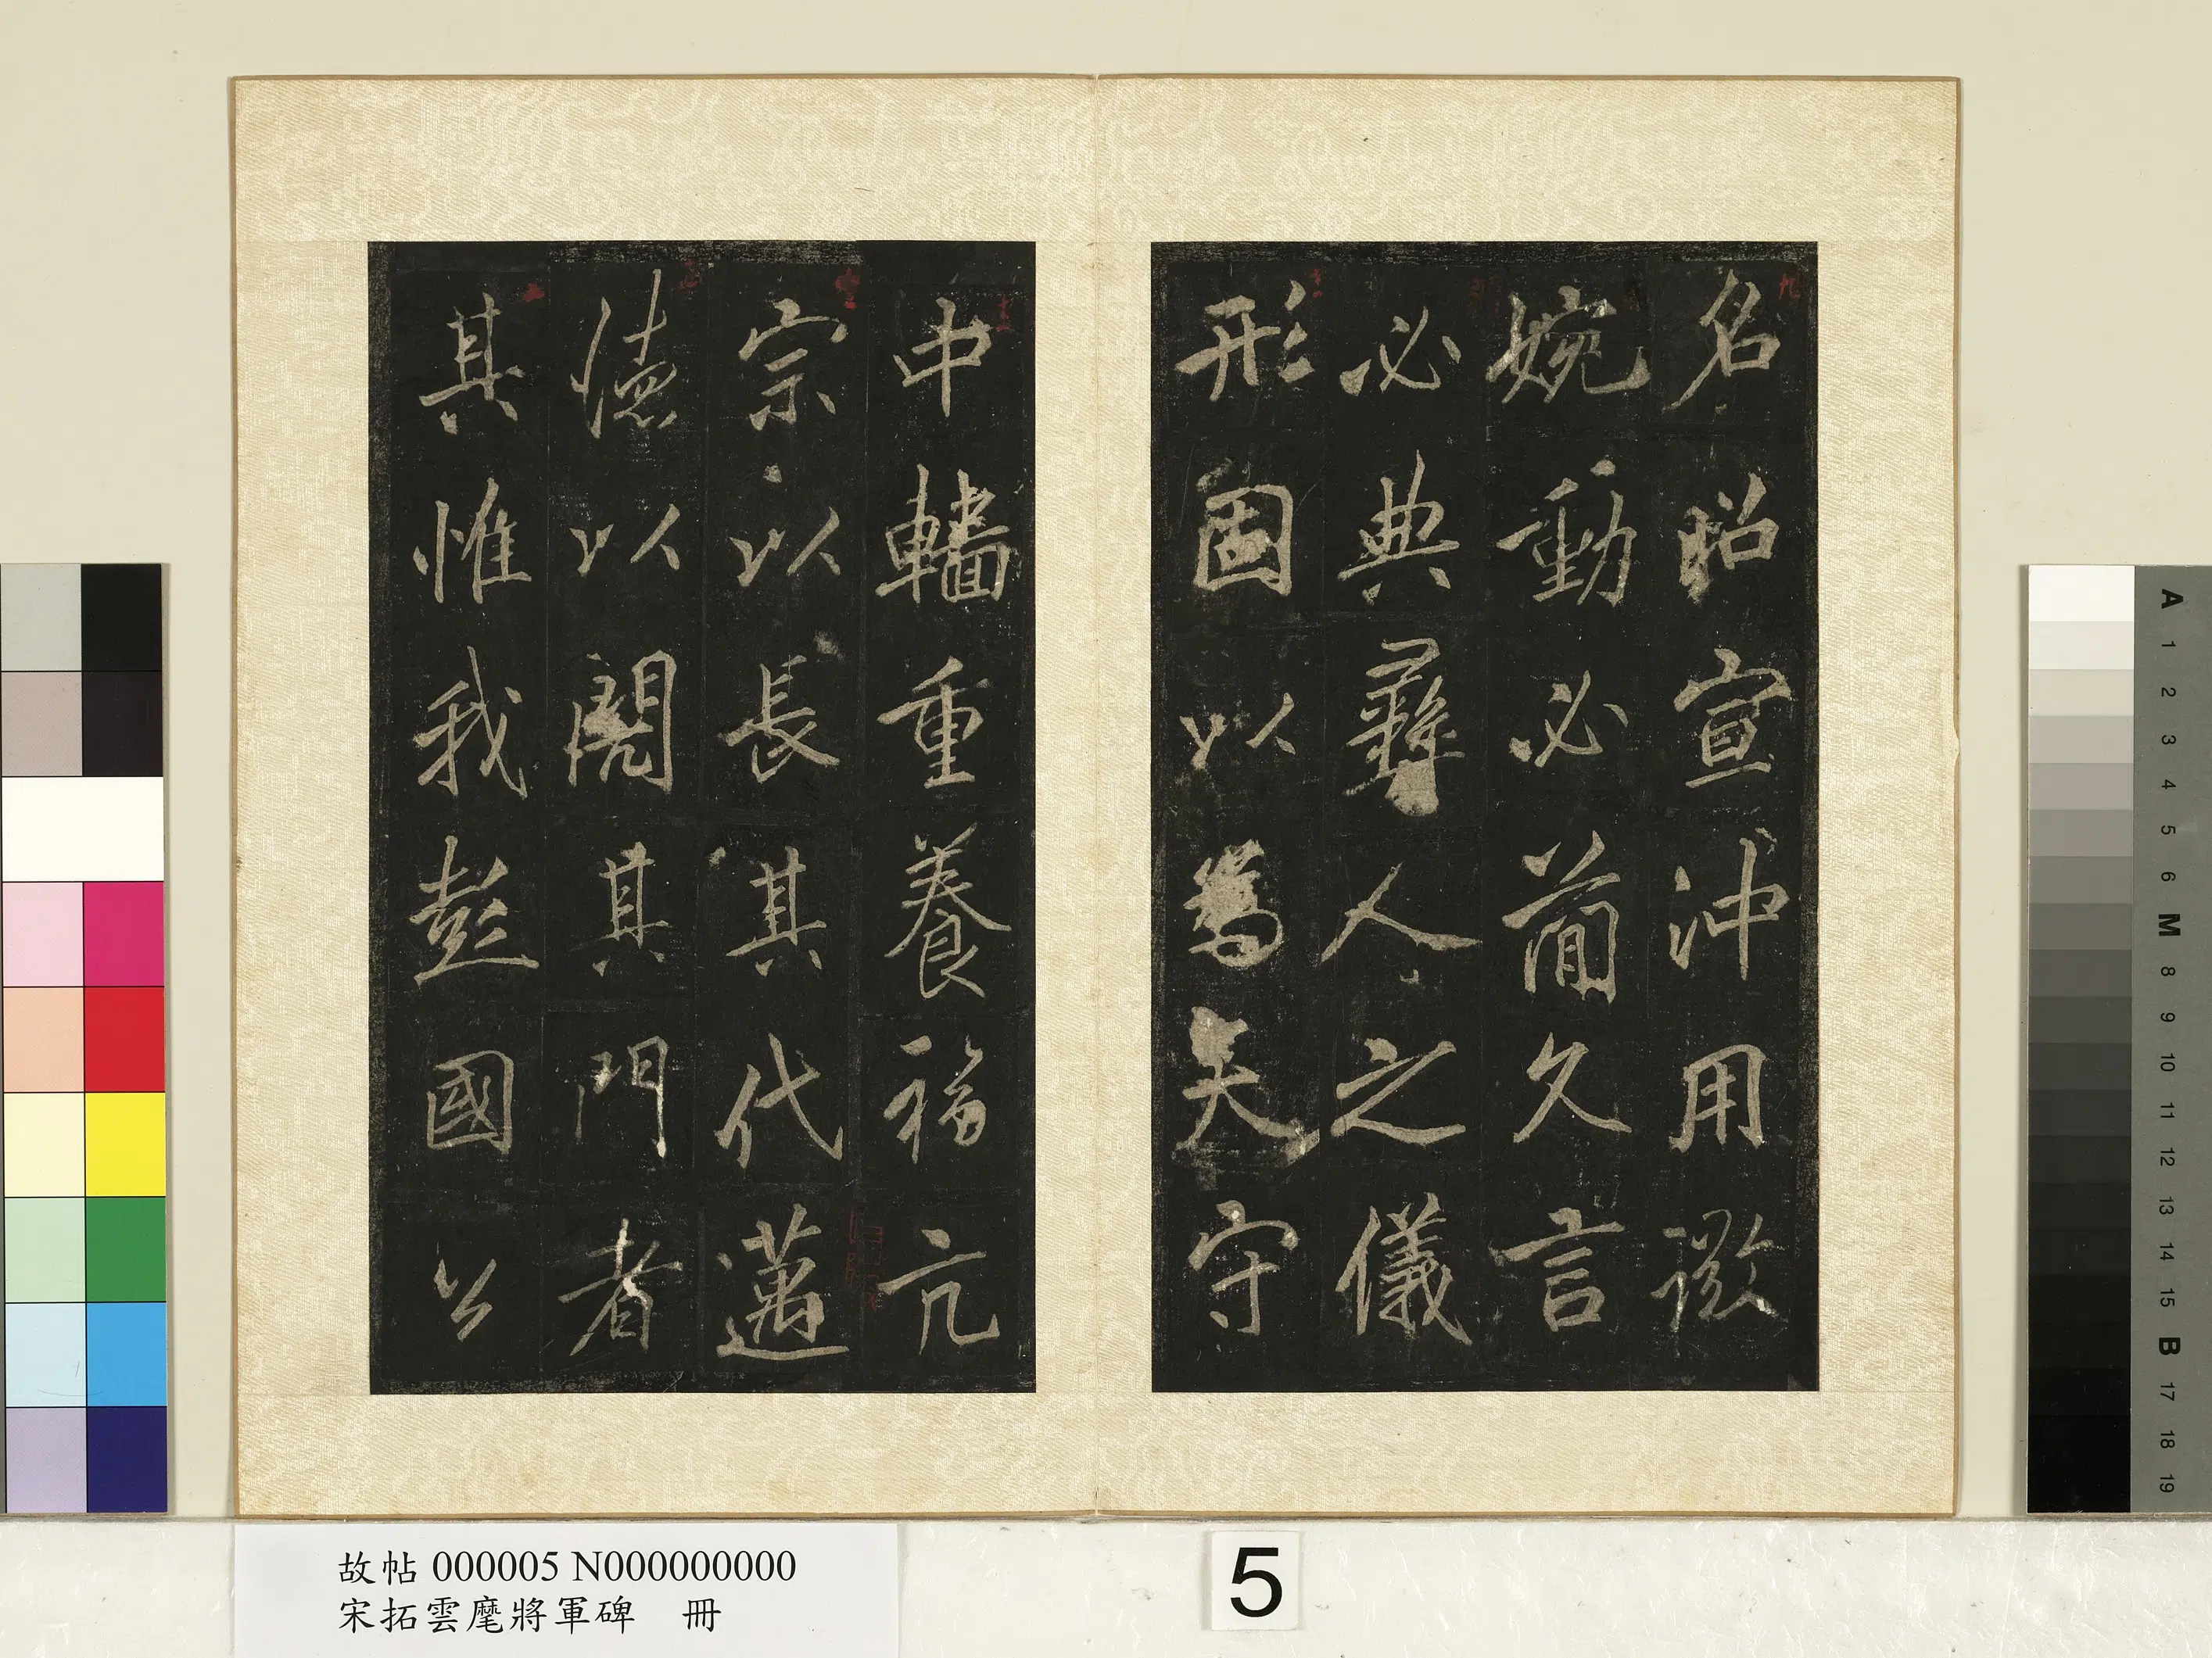 名昭宣沖用微
婉動必簡久言
必典彝人之儀
形固以為天守
中轖重養福亢
宗以長其代邁
德以閎其門者
其惟我彭國公
故帖 000005 N000000000
宋拓雲麾將軍碑 冊
5
A
1
2
3
4
5
6
M
8
9
10
11
12
13
14
15
B
17
18
19